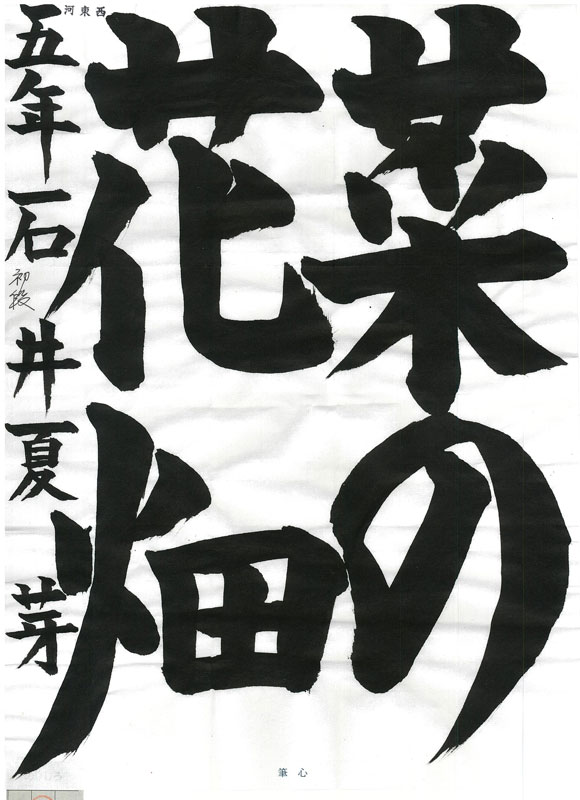 菜の
花畑
河東西
五年 石井 夏芽
初段
心筆